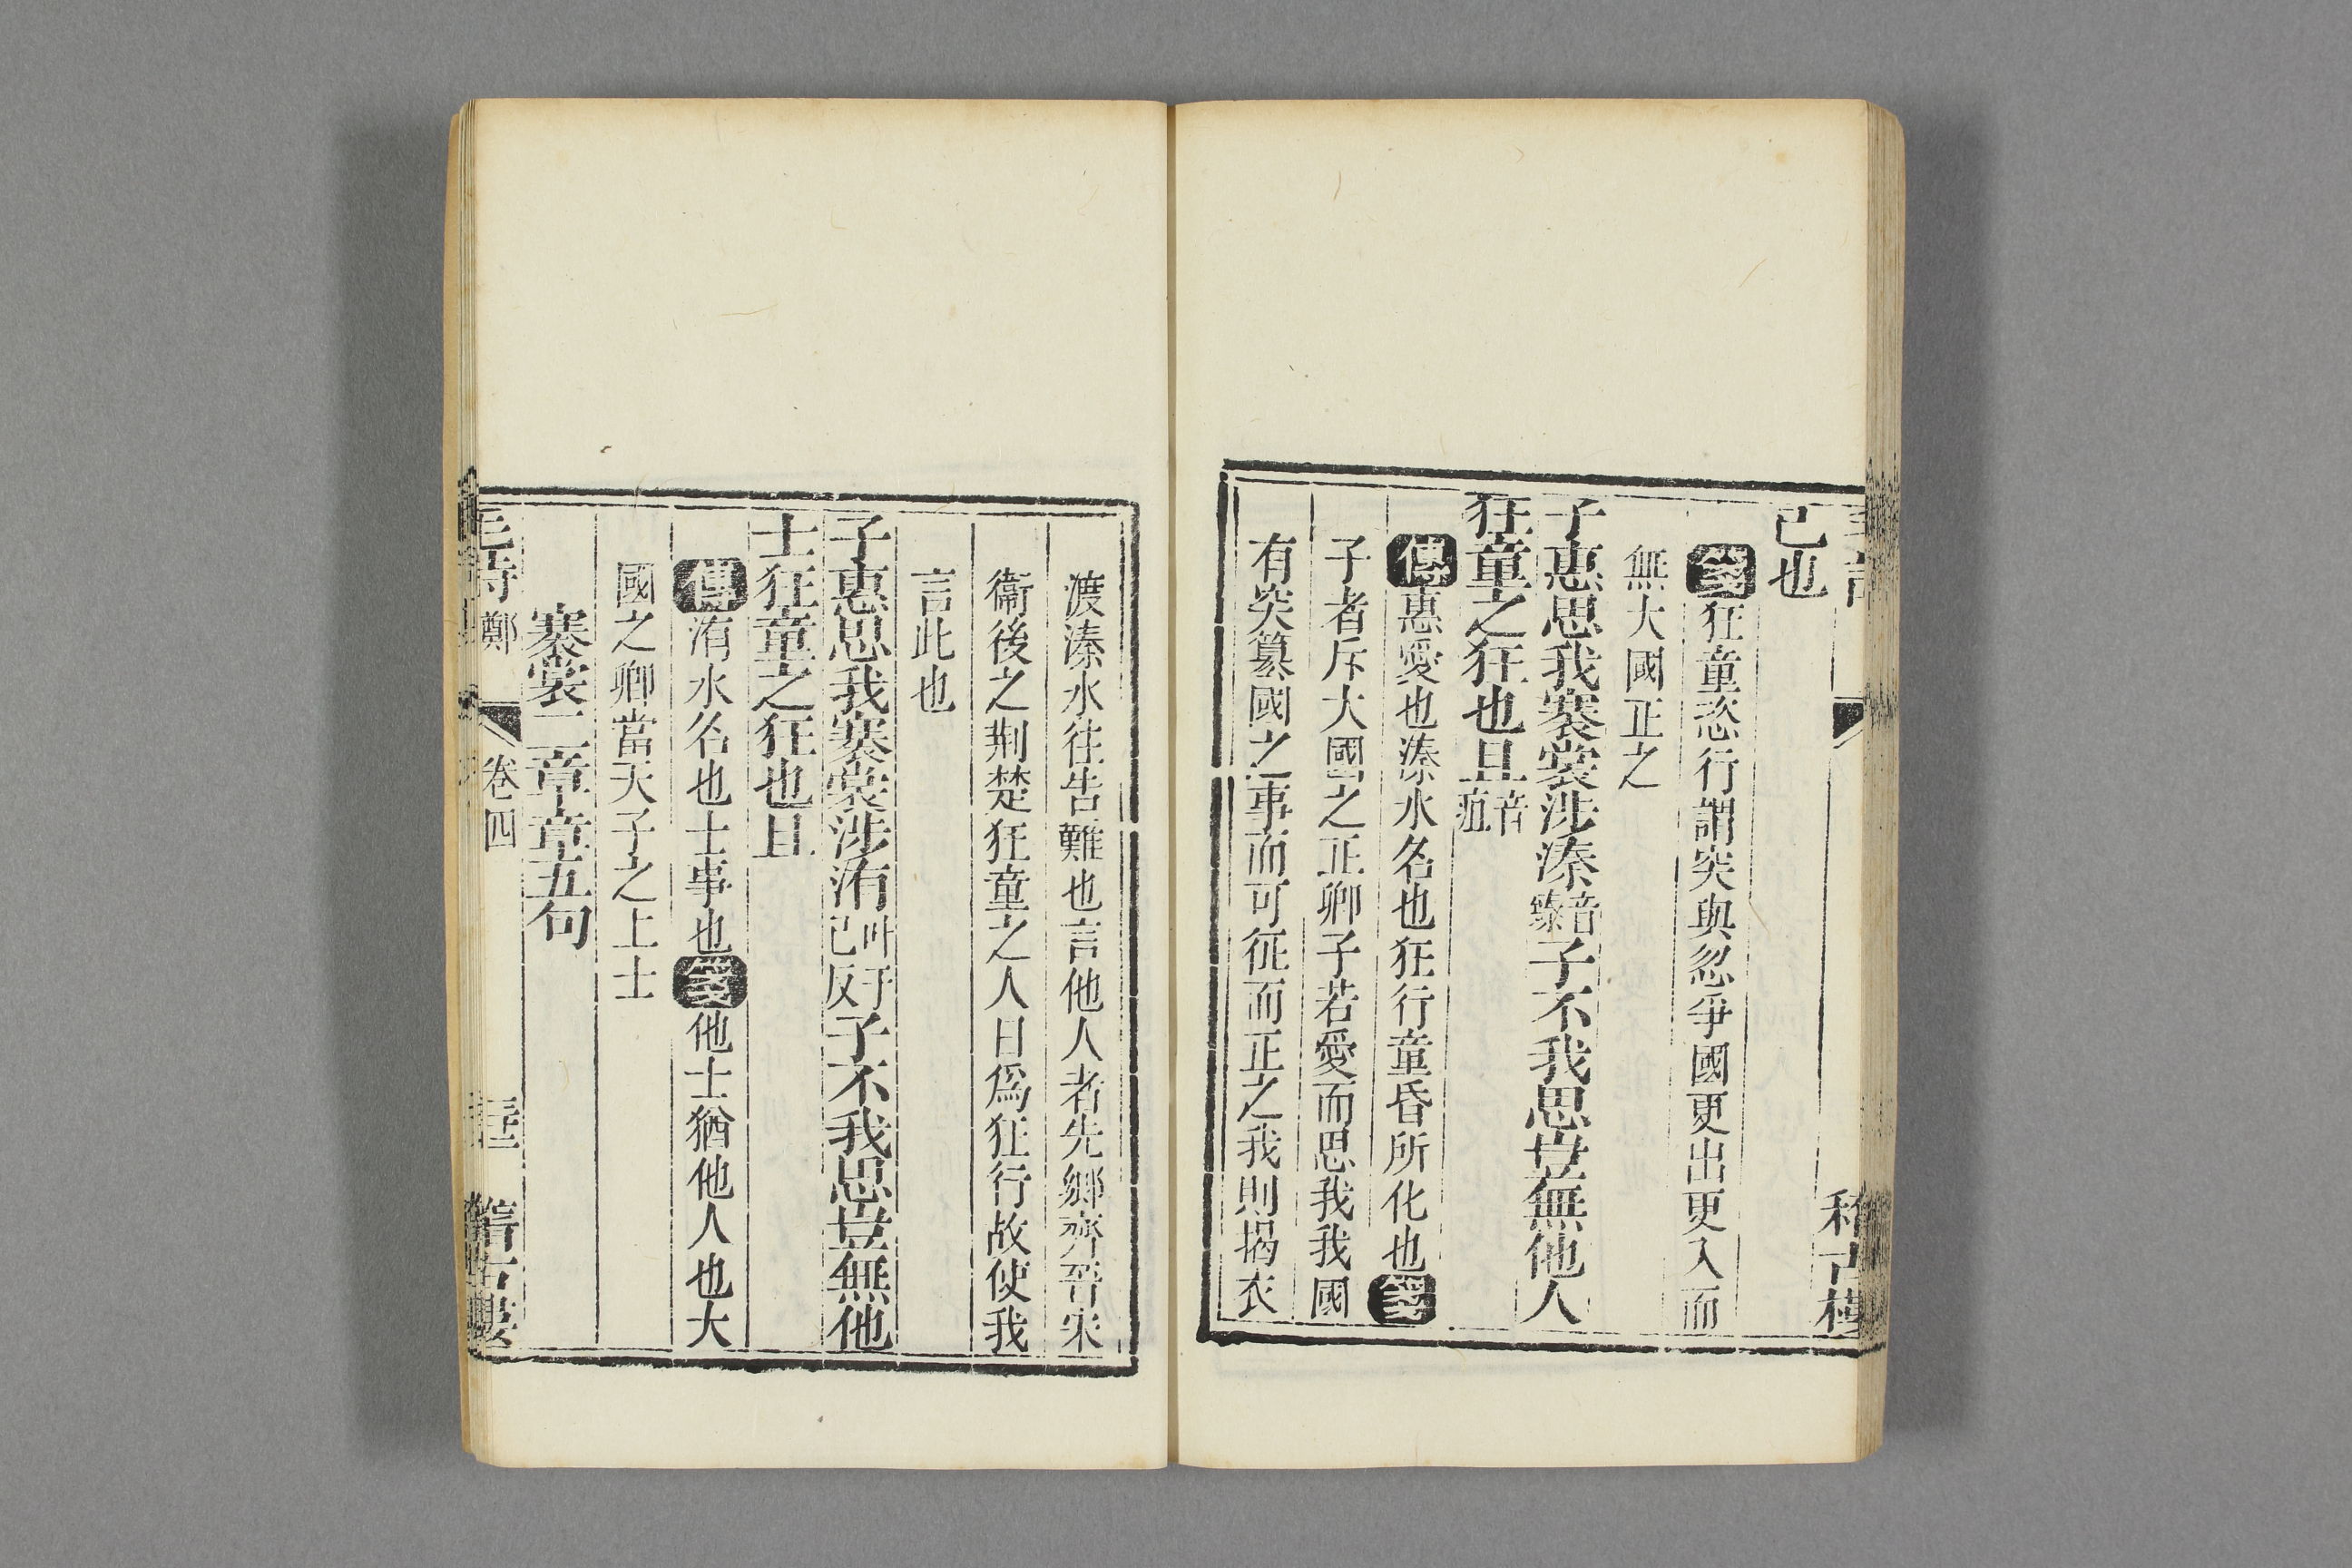 己也
箋狂童恣行謂突與忽爭國更出更入而
無大國正之
子惠思我褰裳涉溱音臻子不我思豈無他人
狂童之狂也且音疽
傳惠愛也溱水名也狂行童昏所化也箋
子者斥大國之正卿子若愛而思我我國
有突簒國之事而可征而正之我則揭衣
渡溱水往告難也言他人者先鄉齊晉宋
衞後之荆楚狂童之人日爲狂行故使我
言此也
子惠思我褰裳涉洧叶于已反子不我思豈無他
士狂童之狂也且
傳洧水名也士事也箋他士猶他人也大
國之卿當天子之上士
褰裳二章章五句
毛詩 鄭 卷四